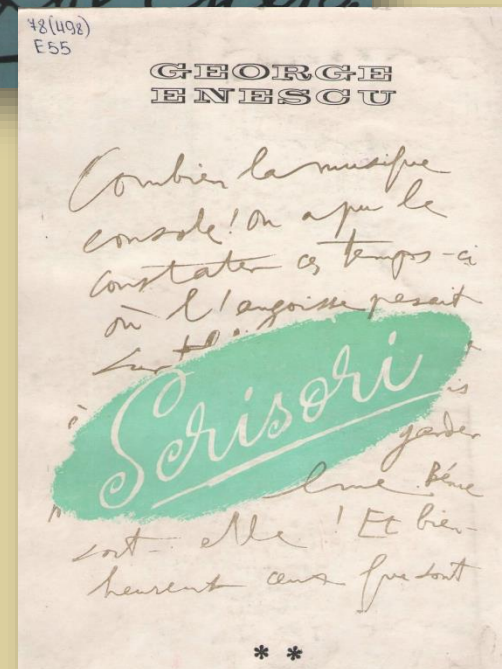 78(498)
E55
GEORGE
ENESCU
Combien la musique
console! On a pu le
constater ces temps-ci
où l'angoisse pesait
sur
Scrisori
is
garder
âme. Bénie
soit-elle! Et bien-
heureux ceux que sont
* *